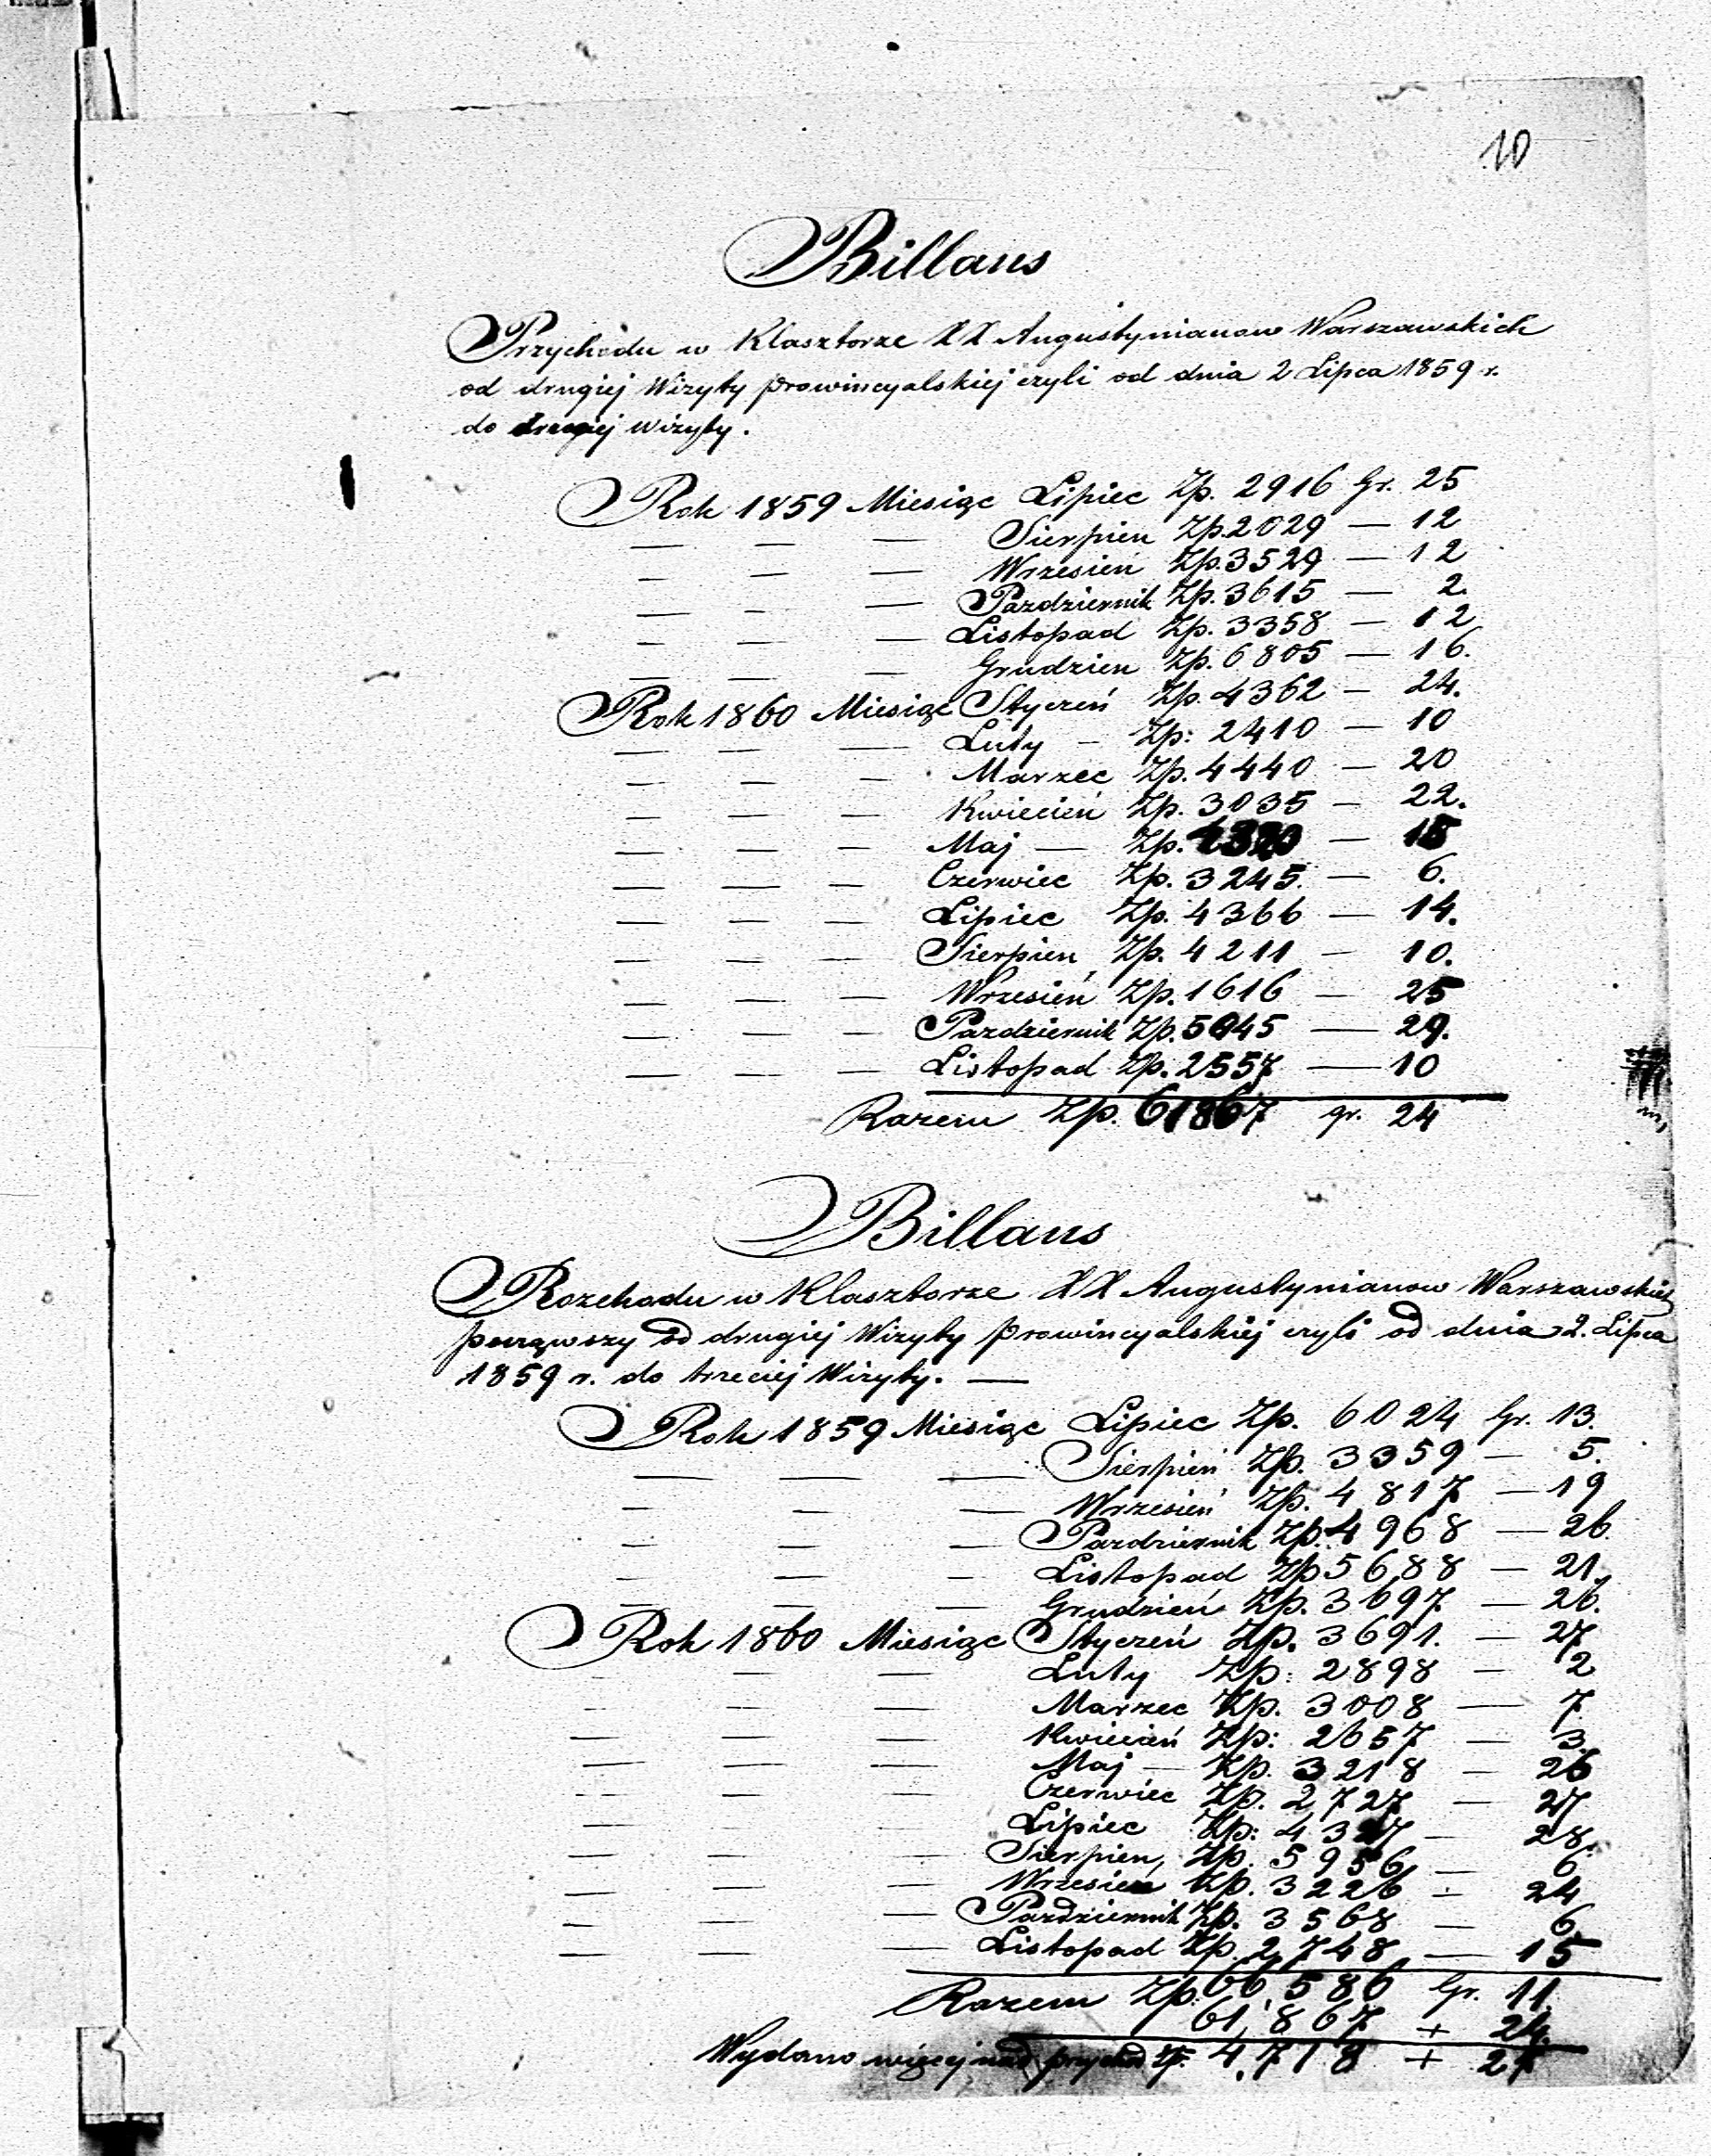 10
Billans
Przychodu w Klasztorze XX Augustynianow Warszawskich
od drugiej Wizyty prowincyalskiej czyli od dnia 2 Lipca 1859 r.
do wizyty.
Rok 1859 Miesiąc Lipiec Zp. 2916 Gr. 25
— — — Sierpień Zp. 2029 — 12
— — — Wrzesień Zp. 3529 — 12
— — — Pazdziernik Zp. 3615 — 2.
— — — Listopad Zp. 3358 — 12
— — — Grudzien Zp. 6805 — 16.
Rok 1860 Miesiąc Styczeń Zp. 4362 — 24.
— — — Luty — Zp: 2410 — 10
— — — Marzec Zp. 4440 — 20
— — — Kwiecień Zp. 3035 — 22.
— — — Maj — Zp. — 15
— — — Czerwiec Zp. 3245. — 6.
— — — Lipiec Zp. 4366 — 14.
— — — Sierpień Zp. 4211 — 10.
— — — Wrzesień Zp. 1616 — 25
— — — Pazdziernik Zp. — 29.
— — — Listopad Zp. 2557 — 10
Razem Zp. 61867 gr. 24
Billans
Rozchodu w Klasztorze XX Augustynianow Warszawskich
począwszy od drugiej Wizyty prowincyalskiej czyli od dnia 2. Lipca
1859 r. do trzeciej Wizyty. —
Rok 1859 Miesiąc Lipiec Zp. 6024 Gr. 13.
— — — Sierpień Zp. 3359 — 5.
— — — Wrzesień Zp. 4817 — 19
— — — Pazdziernik Zp. 4968 — 26
— — — Listopad Zp 5688 — 21.
— — — Grudzień Zp. 3697 — 26.
Rok 1860 Miesiąc Styczeń Zp. 3691. — 27
— — — Luty Zp: 2898 — 2
— — — Marzec Zp. 3008 — 7
— — — Kwiecień Zp: 2657 — 3.
— — — Maj — Zp. 3218 — 26
— — — Czerwiec Zp. 2727 — 27
— — — Lipiec Zp: — 28.
— — — Sierpień, Zp. 5956 — 6
— — — Wrzesień Zp. 3226 — 24
— — — Pazdziernik Zp. 3568 — 6.
— — — Listopad Zp. 2748 — 15
Razem Zp. 66,586 Gr. 11.
61,867 + 24.
Wydano więcej nad przychód Zp. 4,718 + 27